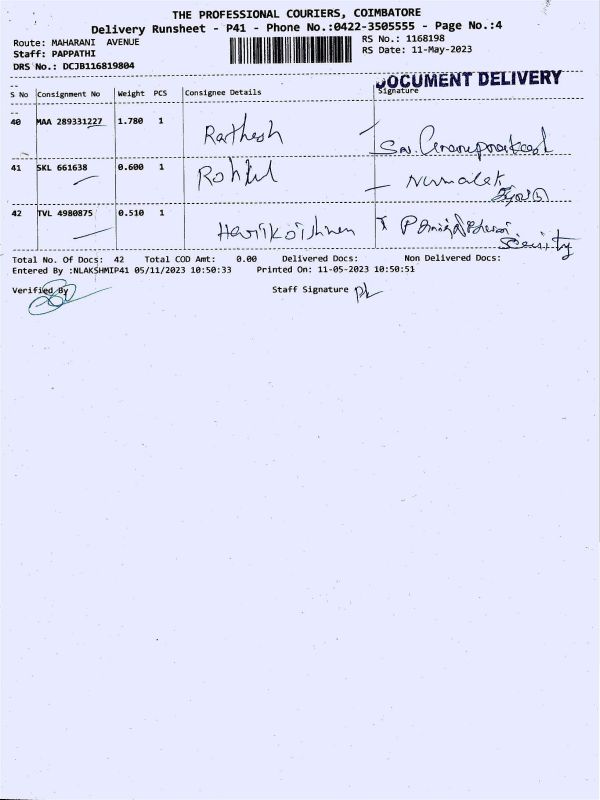 THE PROFESSIONAL COURIERS, COIMBATORE
Delivery Runsheet - P41 - Phone No.:0422-3505555 - Page No.:4
Route: MAHARANI AVENUE
RS No.: 1168198
Staff: PAPPATHI
RS Date: 11-May-2023
DRS No.: DCJB116819804
DOCUMENT DELIVERY
S No Consignment No Weight PCS Consignee Details Signature
40 MAA 289331227 1.780 1 Rathesh
41 SKL 661638 0.600 1 Rohit
42 TVL 4980875 0.510 1 Harikrishnan
Security
Total No. Of Docs: 42 Total COD Amt: 0.00 Delivered Docs: Non Delivered Docs:
Entered By :NLAKSHMIP41 05/11/2023 10:50:33 Printed On: 11-05-2023 10:50:51
Verified By Staff Signature